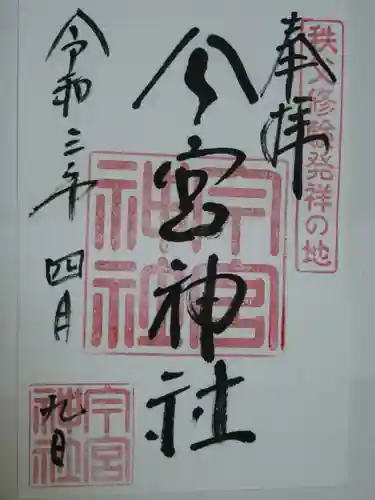 奉拝
秩父修験発祥の地
今宮神社
今宮神社
令和三年四月
九日
今宮神社